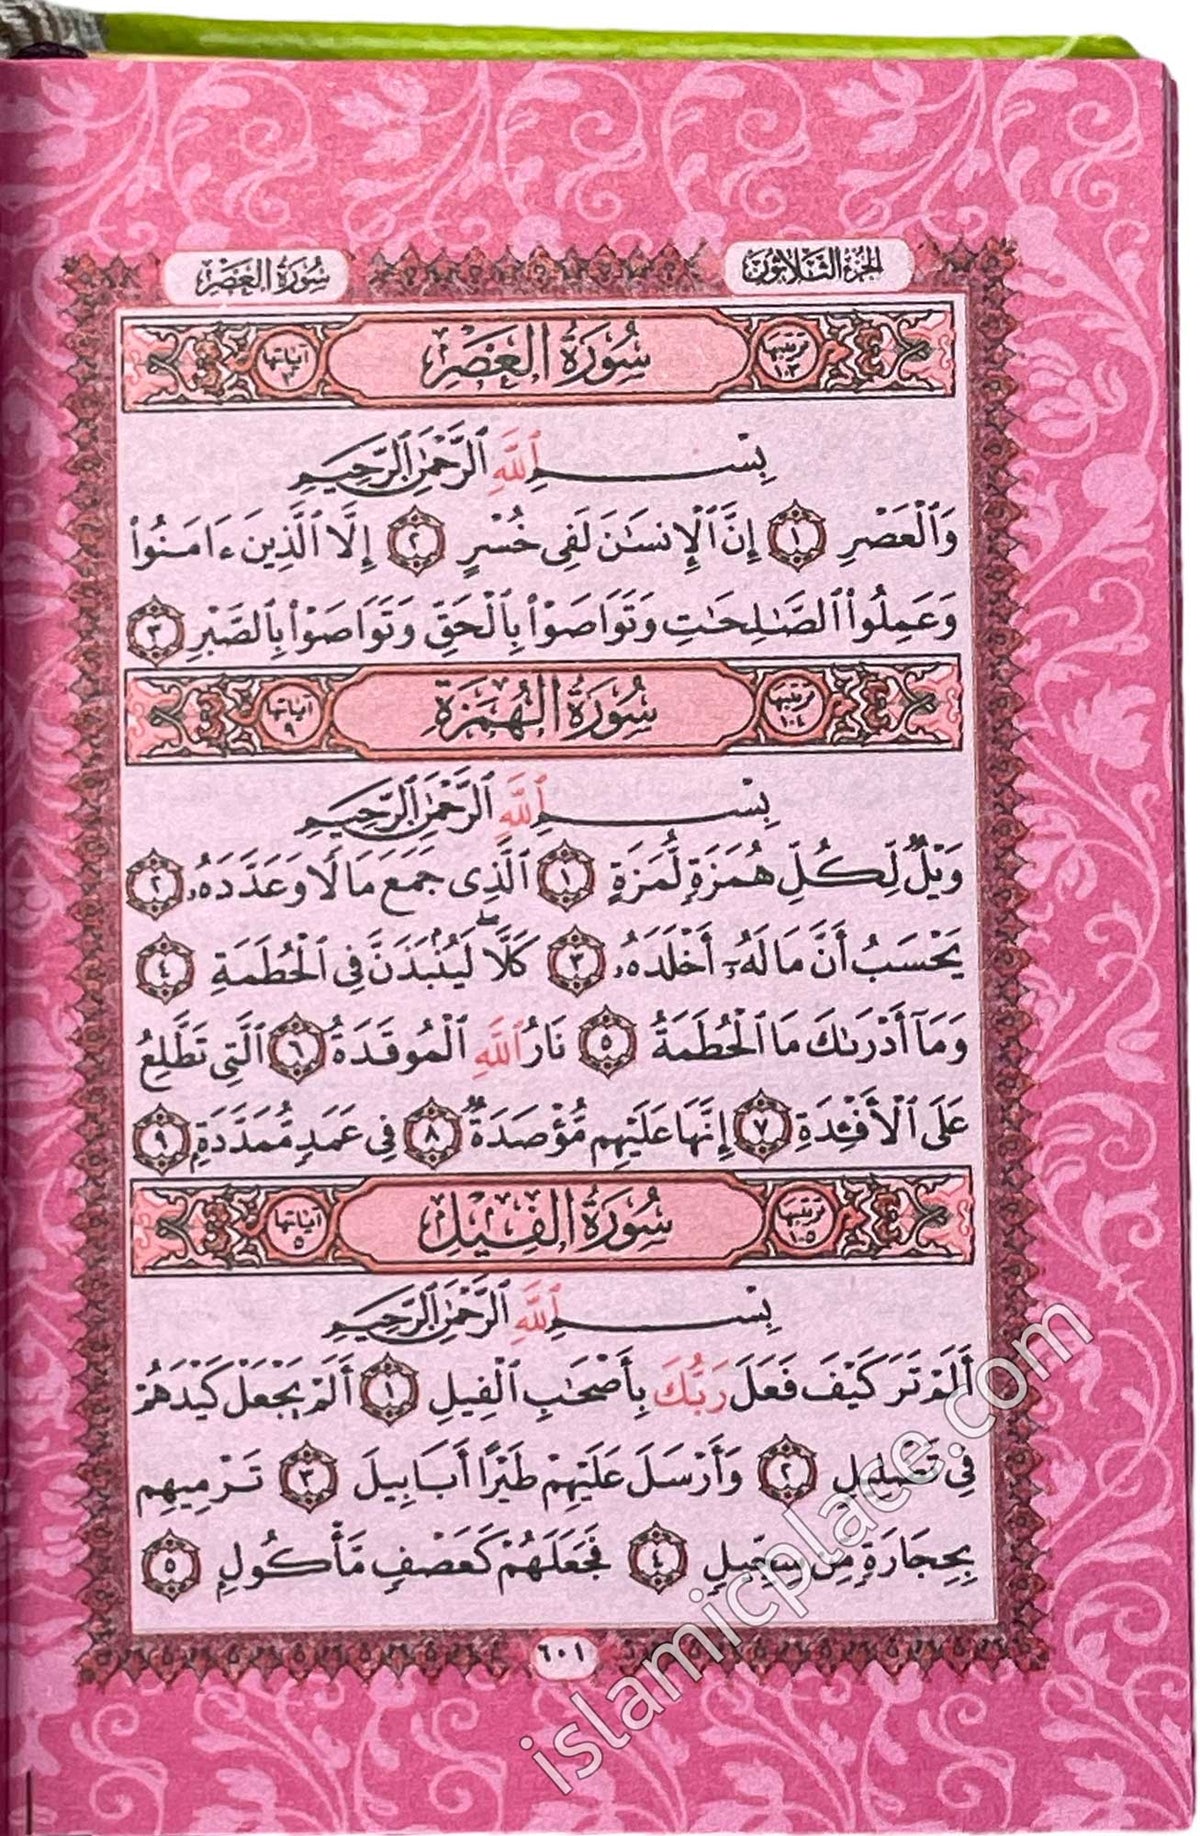 الجزء الثلاثون
سورة العصر
ترتيبها ١٠٣
سُورَةُ الْعَصْرِ
آياتها ٣
بِسْمِ ٱللَّهِ ٱلرَّحْمَٰنِ ٱلرَّحِيمِ
وَٱلْعَصْرِ ١ إِنَّ ٱلْإِنسَٰنَ لَفِى خُسْرٍ ٢ إِلَّا ٱلَّذِينَ ءَامَنُوا۟
وَعَمِلُوا۟ ٱلصَّٰلِحَٰتِ وَتَوَاصَوْا۟ بِٱلْحَقِّ وَتَوَاصَوْا۟ بِٱلصَّبْرِ ٣
ترتيبها ١٠٤
سُورَةُ الْهُمَزَةِ
آياتها ٩
بِسْمِ ٱللَّهِ ٱلرَّحْمَٰنِ ٱلرَّحِيمِ
وَيْلٌ لِّكُلِّ هُمَزَةٍ لُّمَزَةٍ ١ ٱلَّذِى جَمَعَ مَالًا وَعَدَّدَهُۥ ٢
يَحْسَبُ أَنَّ مَالَهُۥٓ أَخْلَدَهُۥ ٣ كَلَّا ۖ لَيُنۢبَذَنَّ فِى ٱلْحُطَمَةِ ٤
وَمَآ أَدْرَىٰكَ مَا ٱلْحُطَمَةُ ٥ نَارُ ٱللَّهِ ٱلْمُوقَدَةُ ٦ ٱلَّتِى تَطَّلِعُ
عَلَى ٱلْأَفْـِٔدَةِ ٧ إِنَّهَا عَلَيْهِم مُّؤْصَدَةٌ ٨ فِى عَمَدٍ مُّمَدَّدَةٍۭ ٩
ترتيبها ١٠٥
سُورَةُ الْفِيلِ
آياتها ٥
بِسْمِ ٱللَّهِ ٱلرَّحْمَٰنِ ٱلرَّحِيمِ
أَلَمْ تَرَ كَيْفَ فَعَلَ رَبُّكَ بِأَصْحَٰبِ ٱلْفِيلِ ١ أَلَمْ يَجْعَلْ كَيْدَهُمْ
فِى تَضْلِيلٍ ٢ وَأَرْسَلَ عَلَيْهِمْ طَيْرًا أَبَابِيلَ ٣ تَرْمِيهِم
بِحِجَارَةٍ مِّن سِجِّيلٍ ٤ فَجَعَلَهُمْ كَعَصْفٍ مَّأْكُولٍۭ ٥
٦٠١
islamicplace.com